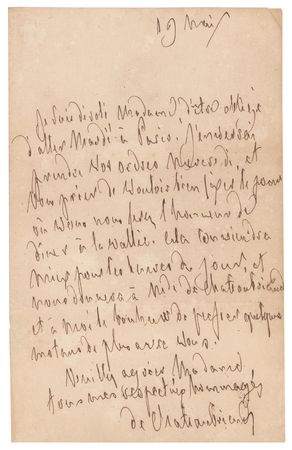 19 mars
Je suis désolé Madame, d'être obligé
d'aller Mardi à Paris. J'enverrai
prendre vos ordres Mercredi, et
vous prier de vouloir bien fixer le jour
où vous nous ferez l'honneur de
dîner à la vallée. cela conviendra
mieux pour les heures du jour, et
nous donnera à Mde de Chateaubriand
et à moi le bonheur de passer quelques
de plus avec vous.
Veuillez agréer Madame
tous mes respectueux hommages
de Chateaubriand